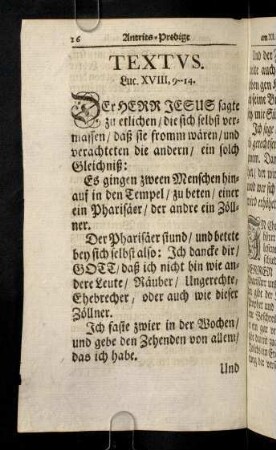 26 Antritts-Predigt
TEXTVS.
Luc. XVIII, 9-14.
DEr HERR JESUS sagte
zu etlichen/ die sich selbst ver-
massen/ daß sie fromm wären/ und
verachteten die andern/ ein solch
Gleichniß:
Es gingen zween Menschen hin-
auf in den Tempel/ zu beten/ einer
ein Pharisäer/ der andre ein Zöll-
ner.
Der Pharisäer stund/ und betete
bey sich selbst also: Ich dancke dir/
GOTT/ daß ich nicht bin wie an-
dere Leute/ Räuber/ Ungerechte/
Ehebrecher/ oder auch wie dieser
Zöllner.
Ich faste zwier in der Wochen/
und gebe den Zehenden von allem/
das ich habe.
Und